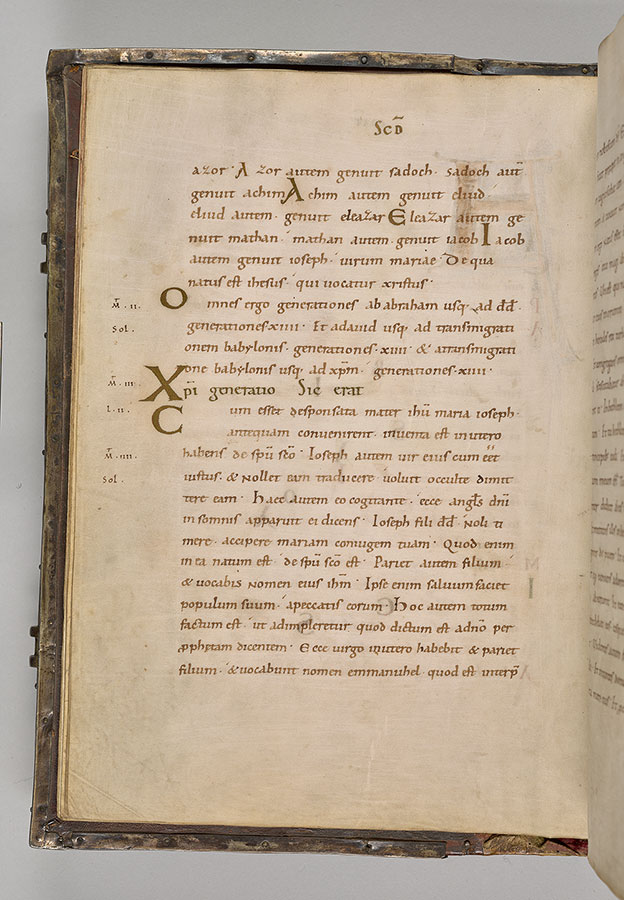 SCD̄
azor · Azor autem genuit sadoch · sadoch aut̄
genuit achim Achim autem genuit eliud
eliud autem · genuit eleazar Eleazar autem ge
nuit mathan · mathan autem · genuit iacob Iacob
autem genuit ioseph · uirum mariae · De qua
natus est ihesus · qui uocatur xristus ·
M̄ . II . Omnes ergo generationes ab abraham usq; ad dd̄ ·
Sol . generationes · xiiii · Et adauid usq; ad transmigrati
onem babylonis · generationes · xiiii · & atransmigrati
one babylonis usq; ad xp̄m · generationes · xiiii ·
M̄ . III . Xp̄i generatio Sic erat
L . II . Cum esset desponsata mater ihū maria ioseph ·
antequam conuenirent · inuenta est inutero
M̄ . IIII . habens de spū sc̄o · Ioseph autem uir eius cum eēt
Sol . iustus · & Nollet eam traducere · uoluit occulte dimit
tere eam · Haec autem eo cogitante · ecce angl̄s dn̄i
in somnis apparuit ei dicens · Ioseph fili dd̄ · Noli ti
mere · accipere mariam coniugem tuam · Quod enim
in ea natum est · de spū sc̄o est · Pariet autem filium
& uocabis Nomen eius ihm̄ · Ipse enim saluum faciet
populum suum · apeccatis eorum · Hoc autem totum
factum est · ut adimpleretur quod dictum est adn̄o per
ꝓphetam dicentem · Ecce uirgo inutero habebit & pariet
filium · & uocabunt nomen emmanuhel · quod est interp̄